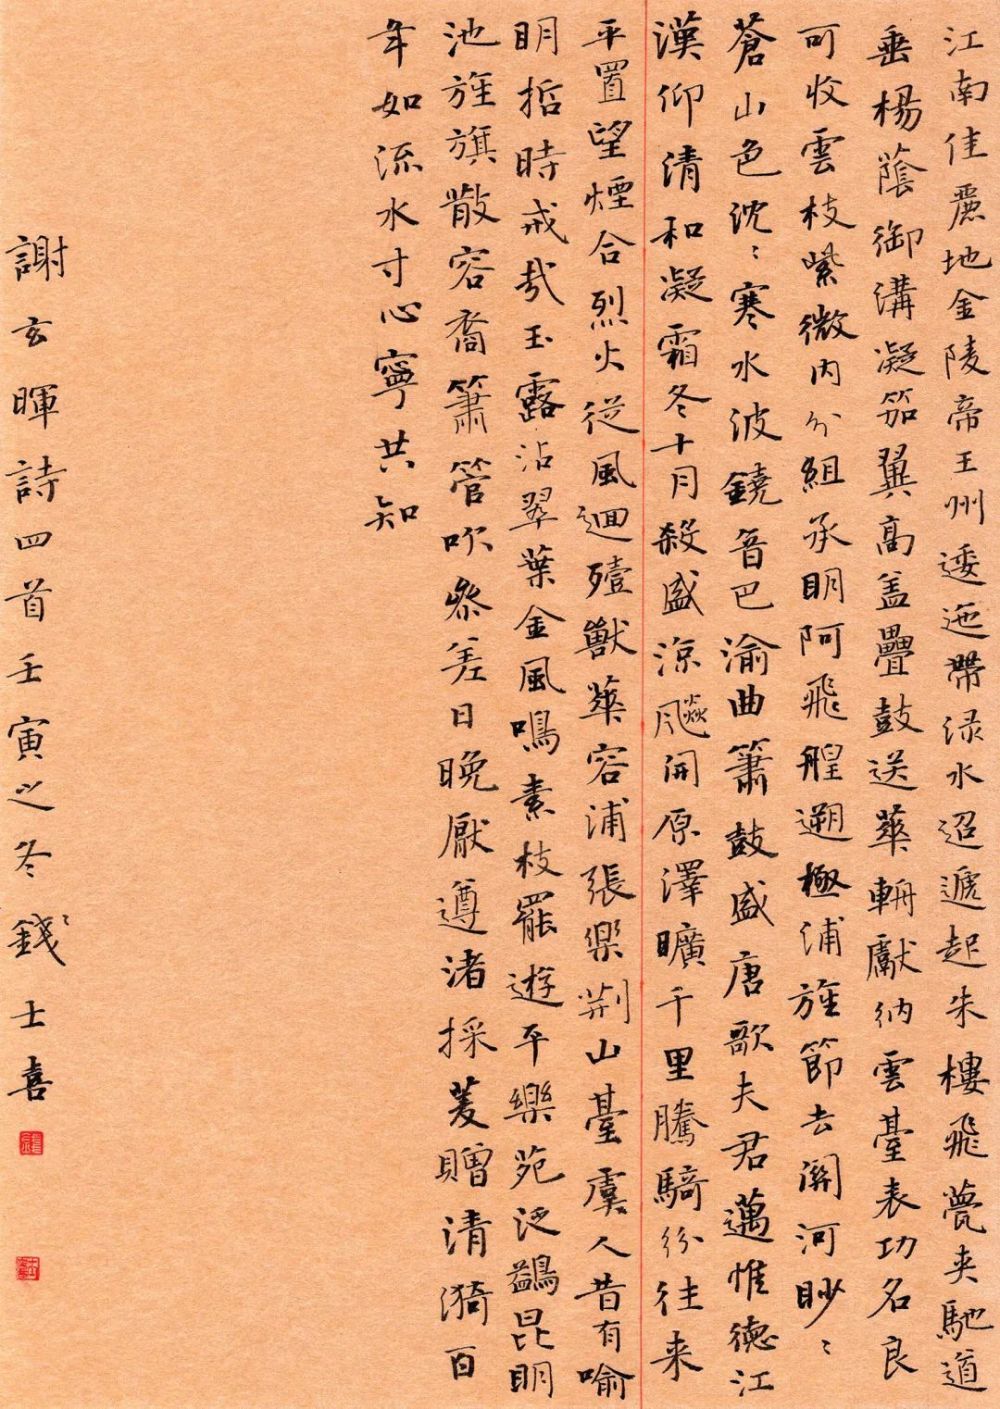 江南佳麗地金陵帝王州逶迤帶淥水迢遞起朱樓飛甍夾馳道
垂楊蔭御溝凝笳翼高蓋疊鼓送華輈獻納雲臺表功名良
可收雲枝紫微內分組承明阿飛艎遡極浦旌節去關河眇〻
蒼山色沈〻寒水波鐃音巴渝曲簫鼓盛唐歌夫君邁惟德江
漢仰清和凝霜冬十月殺盛涼飈開原澤曠千里騰騎紛往來
平置望煙合烈火從風迴殪獸華容浦張樂荆山臺虞人昔有喻
明哲時戒哉玉露沾翠葉金風鳴素枝罷遊平樂苑泛鷁昆明
池旌旗散容裔簫管吹參差日晚厭遵渚採菱贈清漪百
年如流水寸心寧共知
謝玄暉詩四首壬寅之冬錢〻士喜